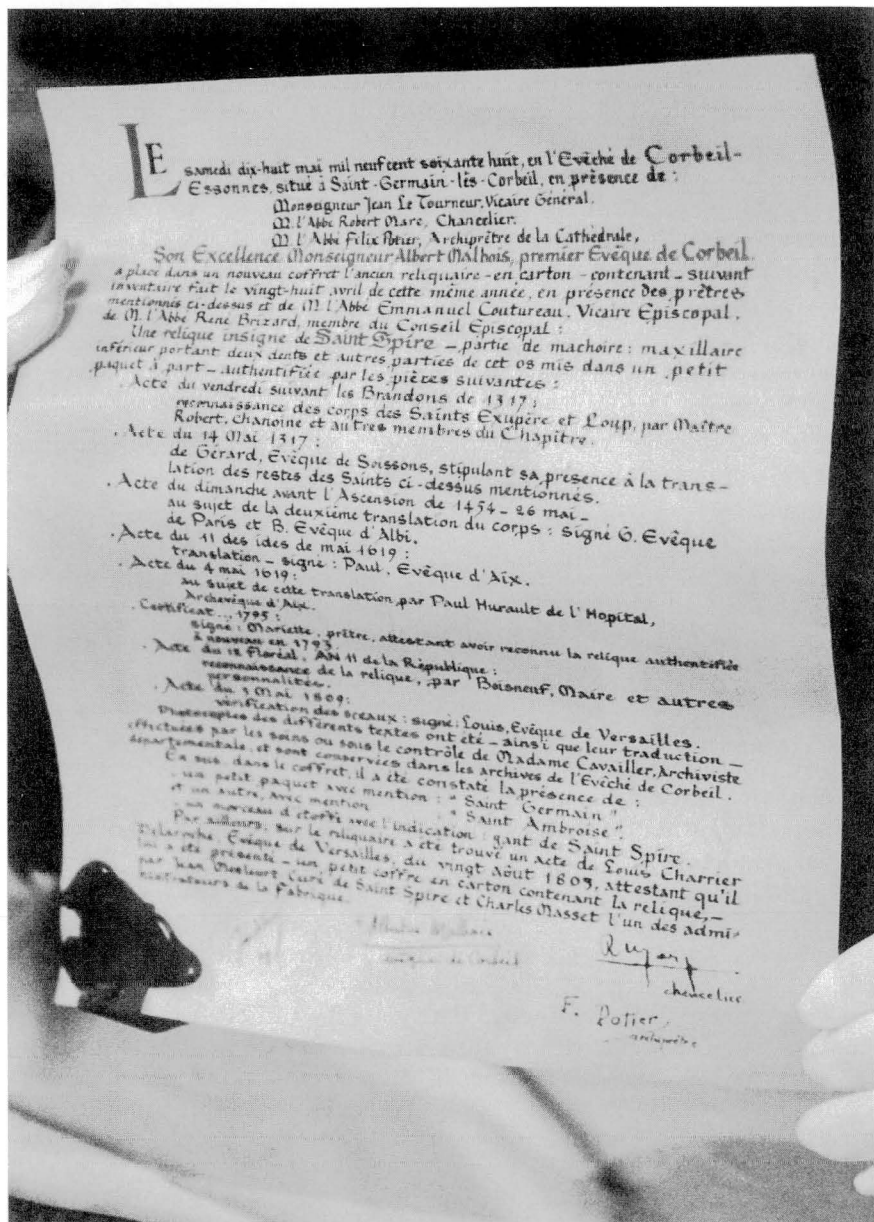 LE samedi dix-huit mai mil neuf cent soixante huit, en l'Evêché de Corbeil-
Essonnes, situé à Saint-Germain-lès-Corbeil, en présence de :
Monseigneur Jean Le Tourneur, Vicaire Général.
M. l'Abbé Robert Marc, Chancelier.
M. l'Abbé Félix Potier, Archiprêtre de la Cathédrale,
Son Excellence Monseigneur Albert Malbois, premier Evêque de Corbeil.
a placé dans un nouveau coffret l'ancien reliquaire - en carton - contenant - suivant
inventaire fait le vingt-huit avril de cette même année, en présence des prêtres
mentionnés ci-dessus et de M. l'Abbé Emmanuel Coutureau, Vicaire Episcopal,
de M. l'Abbé René Brizard, membre du Conseil Episcopal :
Une relique insigne de Saint Spire - partie de machoire : maxillaire
inférieur portant deux dents et autres parties de cet os mis dans un petit
paquet à part - authentifiée par les pièces suivantes :
. Acte du vendredi suivant les Brandons de 1317 :
reconnaissance des corps des Saints Exupère et Loup, par Maître
Robert, Chanoine et autres membres du Chapitre.
. Acte du 14 Mai 1317 :
de Gérard, Evêque de Soissons, stipulant sa présence à la trans-
lation des restes des Saints ci-dessus mentionnés.
. Acte du dimanche avant l'Ascension de 1454 - 26 mai -
au sujet de la deuxième translation du corps : signé G. Evêque
de Paris et B. Evêque d'Albi.
. Acte du 11 des ides de mai 1619 :
translation - signé : Paul, Evêque d'Aix.
. Acte du 4 mai 1619 :
au sujet de cette translation, par Paul Hurault de l'Hopital,
Archevêque d'Aix.
. Certificat ... 1795 :
signé : Mariette, prêtre, attestant avoir reconnu la relique authentifiée
à nouveau en 1793.
. Acte du 12 Floréal, AN 11 de la République :
reconnaissance de la relique, par Boisneuf, Maire et autres
personnalités.
. Acte du 3 Mai 1809 :
vérification des sceaux : signé : Louis, Evêque de Versailles.
Photocopies des différents textes ont été - ainsi que leur traduction -
effectuées par les soins ou sous le contrôle de Madame Cavailler, Archiviste
départementale, et sont conservées dans les archives de l'Evêché de Corbeil.
En sus, dans le coffret, il a été constaté la présence de :
. un petit paquet avec mention : " Saint Germain "
et un autre, avec mention " Saint Ambroise ".
. un morceau d'étoffe avec l'indication : gant de Saint Spire.
Par ailleurs, sur le reliquaire a été trouvé un acte de Louis Charrier
Delaroche, Evêque de Versailles, du vingt août 1803, attestant qu'il
lui a été présenté - un petit coffre en carton contenant la relique, -
par Jean Curé de Saint Spire et Charles Masset l'un des admi-
nistrateurs de la Fabrique.
évêque de Corbeil
chancelier
F. Potier,
archiprêtre